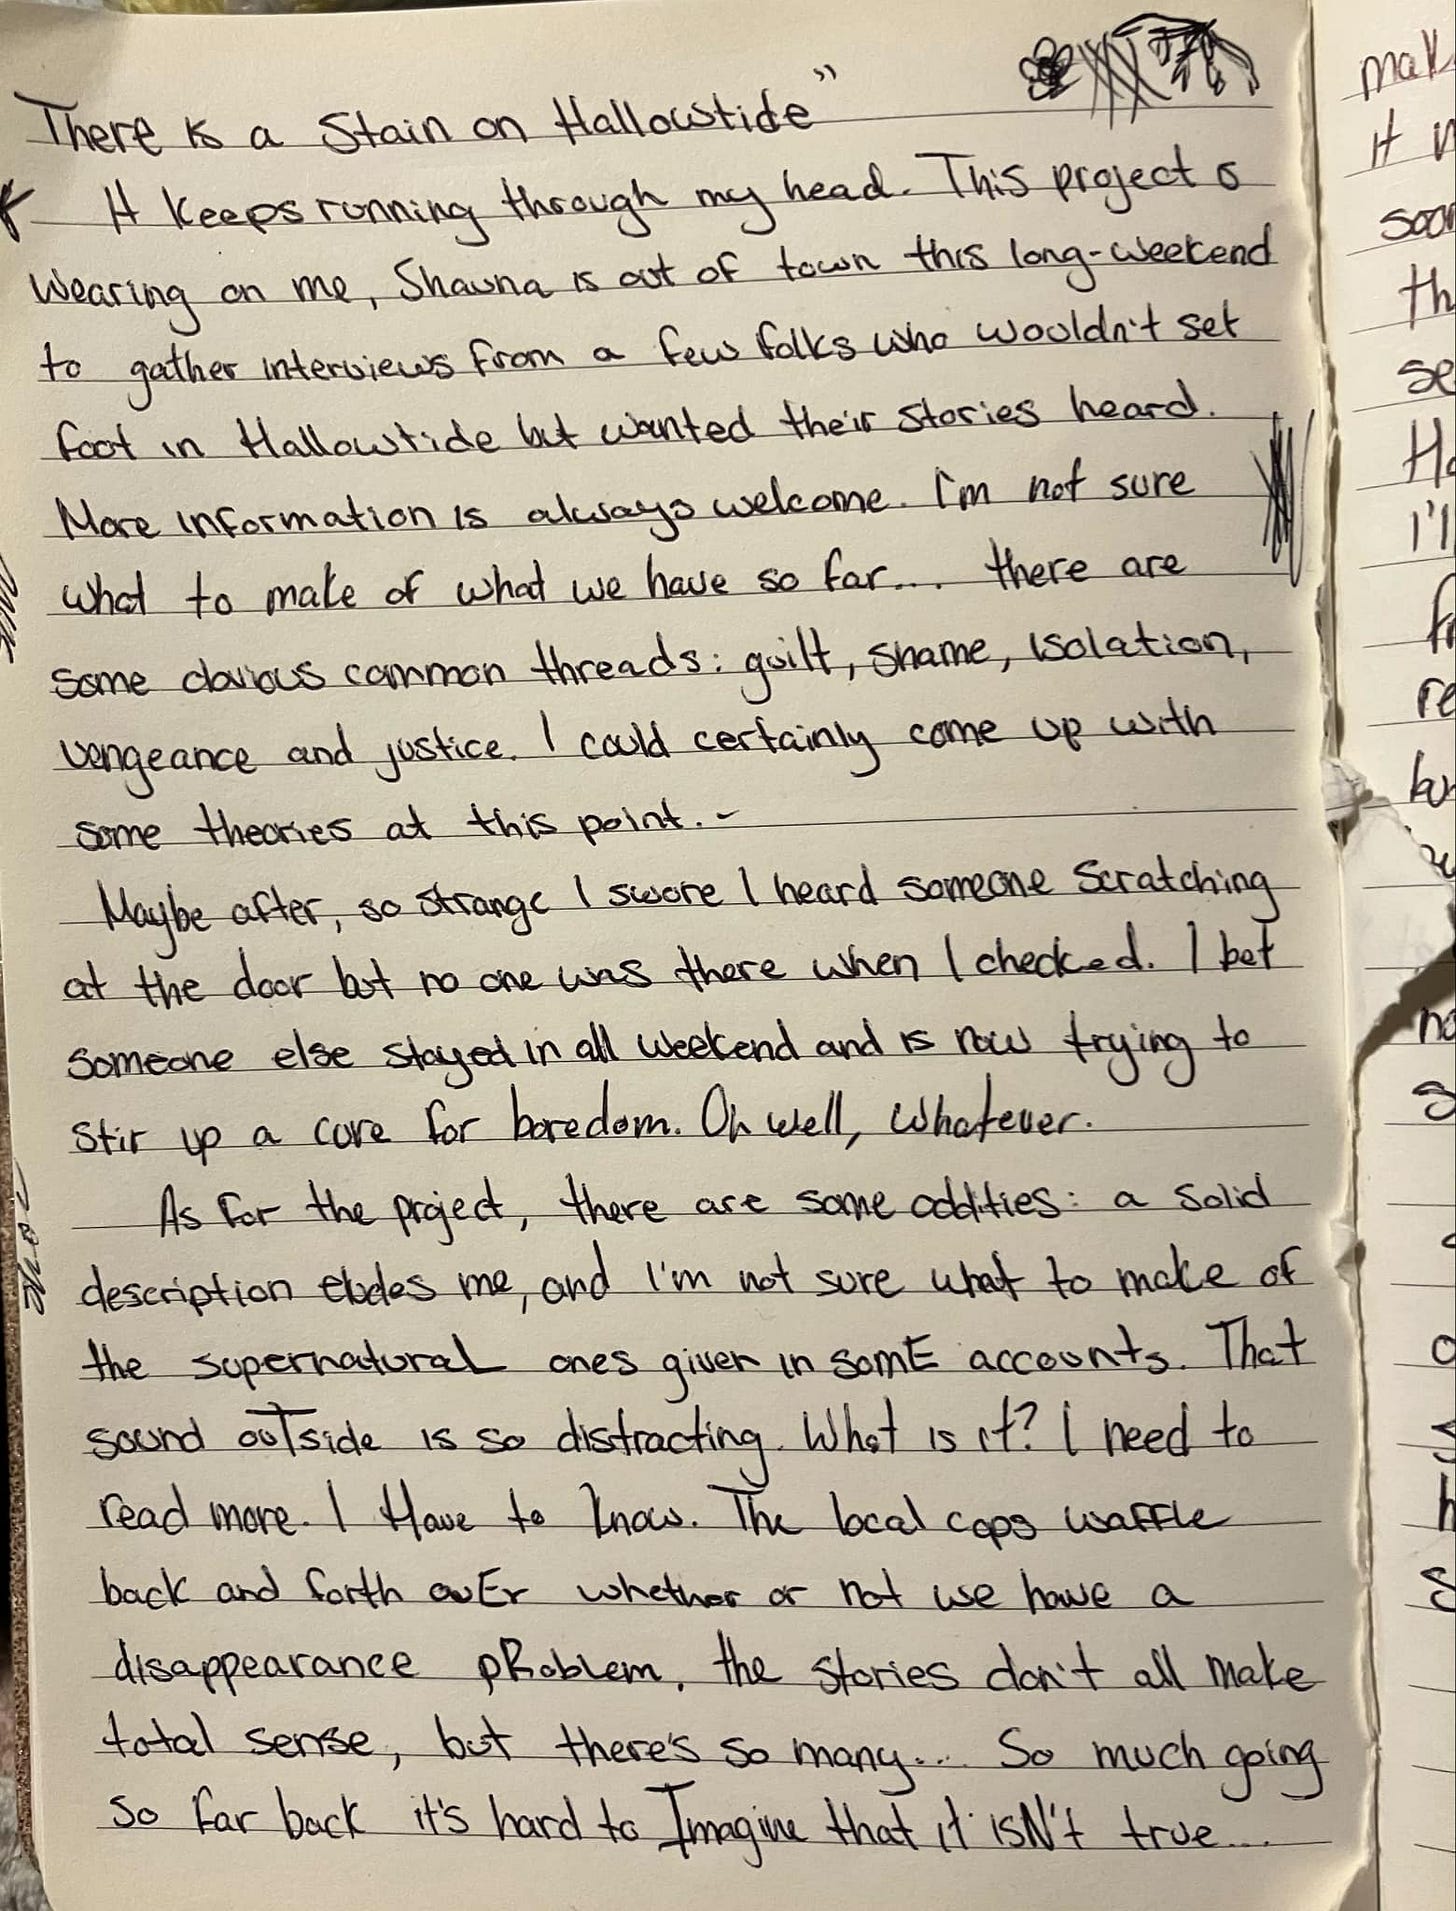 There is a Stain on Hallowstide"
It keeps running through my head. This project is
wearing on me, Shauna is out of town this long-weekend
to gather interviews from a few folks who wouldn't set
foot in Hallowstide but wanted their stories heard.
More information is always welcome. I'm not sure
what to make of what we have so far... there are
some obvious common threads: guilt, shame, isolation,
vengeance and justice. I could certainly come up with
some theories at this point. -
Maybe after, so strange I swore I heard someone scratching
at the door but no one was there when I checked. I bet
someone else stayed in all weekend and is now trying to
stir up a cure for boredom. Oh well, whatever.
As for the project, there are some oddities: a solid
description eludes me, and I'm not sure what to make of
the supernaturaL ones given in somE accounts. That
sound ouTside is so distracting. What is it? I need to
read more. I Have to know. The local cops waffle
back and forth ovEr whether or not we have a
disappearance pRoblem, the stories don't all make
total sense, but there's so many... So much going
so far back it's hard to Imagine that it isN't true...
mak
it
soo
th
se
Ha
I'll
re